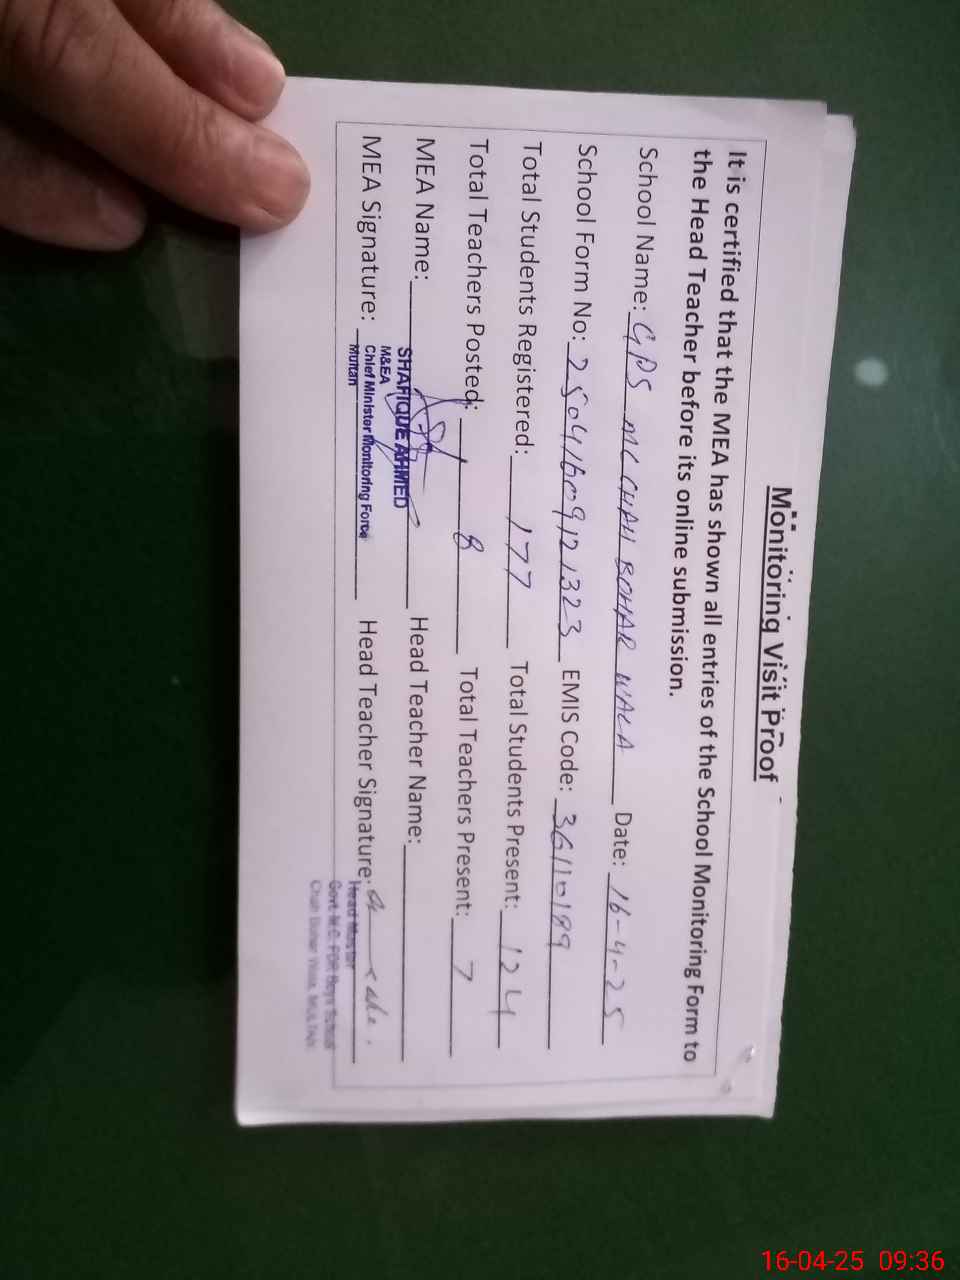 Monitoring Visit Proof
It is certified that the MEA has shown all entries of the School Monitoring Form to
the Head Teacher before its online submission.
School Name: GPS MC CHAH BOHAR WALA Date: 16-4-25
School Form No: 2504160912323 EMIS Code: 36110189
Total Students Registered: 177 Total Students Present: 124
Total Teachers Posted: 8 Total Teachers Present: 7
MEA Name: SHAFIQUE AHMED Head Teacher Name:
MEA Signature: M&EA Head Teacher Signature:
Chief Minister Monitoring Force
Multan
Head Master
Govt. M.C. Boys School
Chah Bohar Wala, MULTAN
16-04-25 09:36